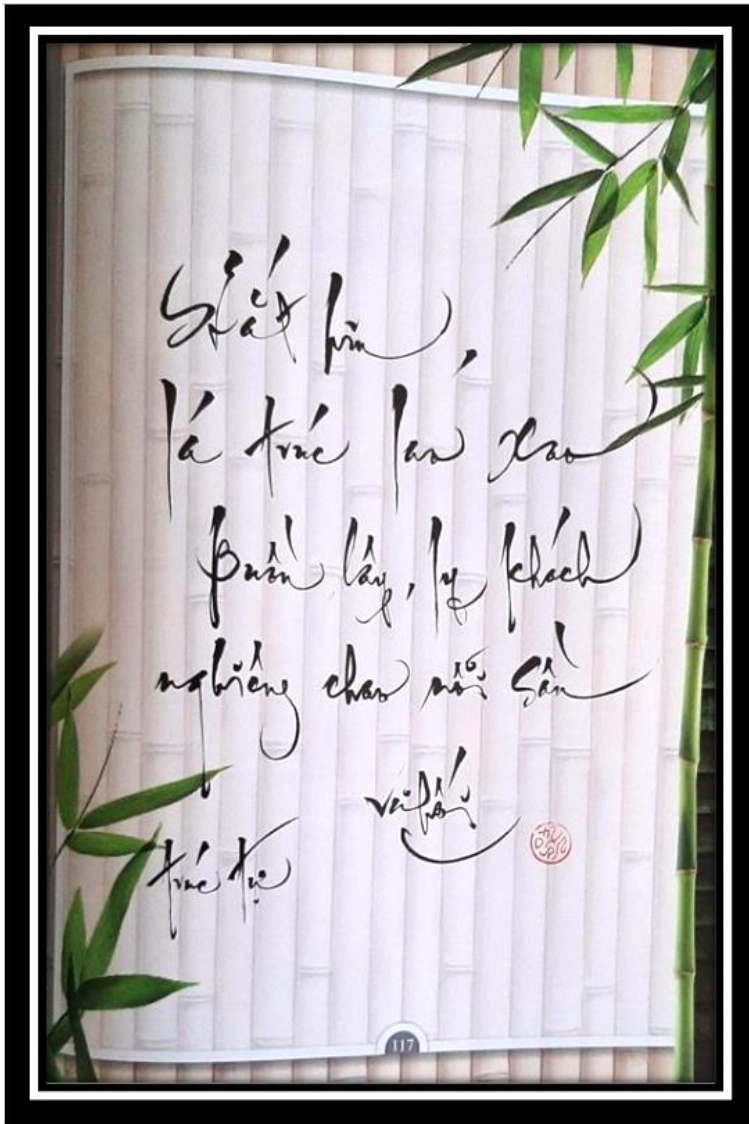 lá trúc lao xao
buồn lây, ly khách
nghiêng chao nỗi sầu
vũ hối
trúc tự
117